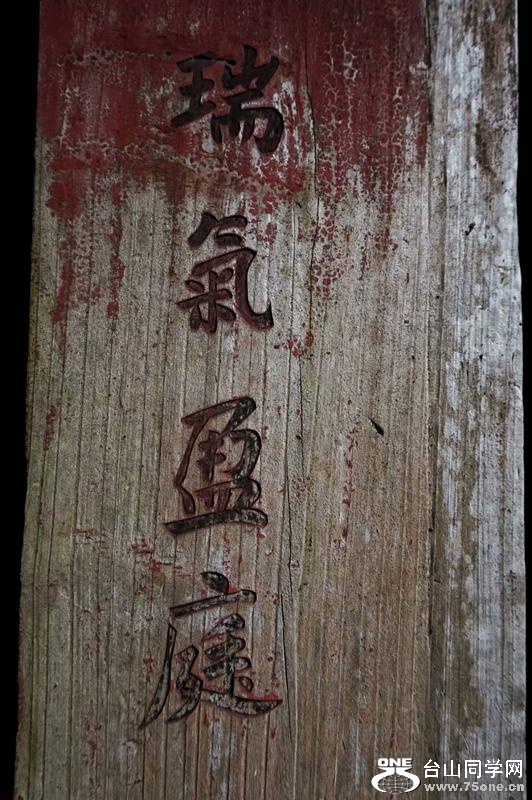 瑞氣盈庭
ONE 台山同学网
www.75one.cn